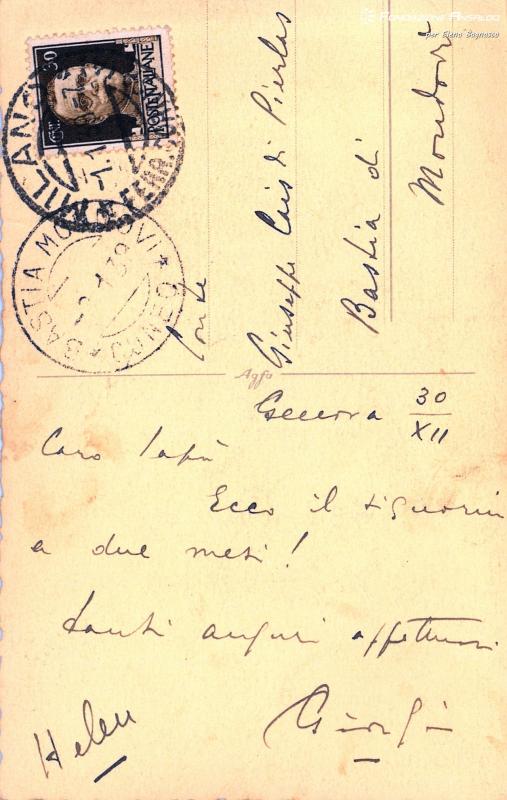 FONDAZIONE ANSALDO
per Elena Bagnasco
30
POSTE ITALIANE
MILANO
BASTIA MONDOVI
* CUNEO *
Conte
Giuseppe Luis di Pierlas
Bastia di
Mondovì
Agfa
Genova 30/XII
Caro Papà
Ecco il signorin
a due mesi!
Tanti auguri affettuosi
Helen
Giorgio